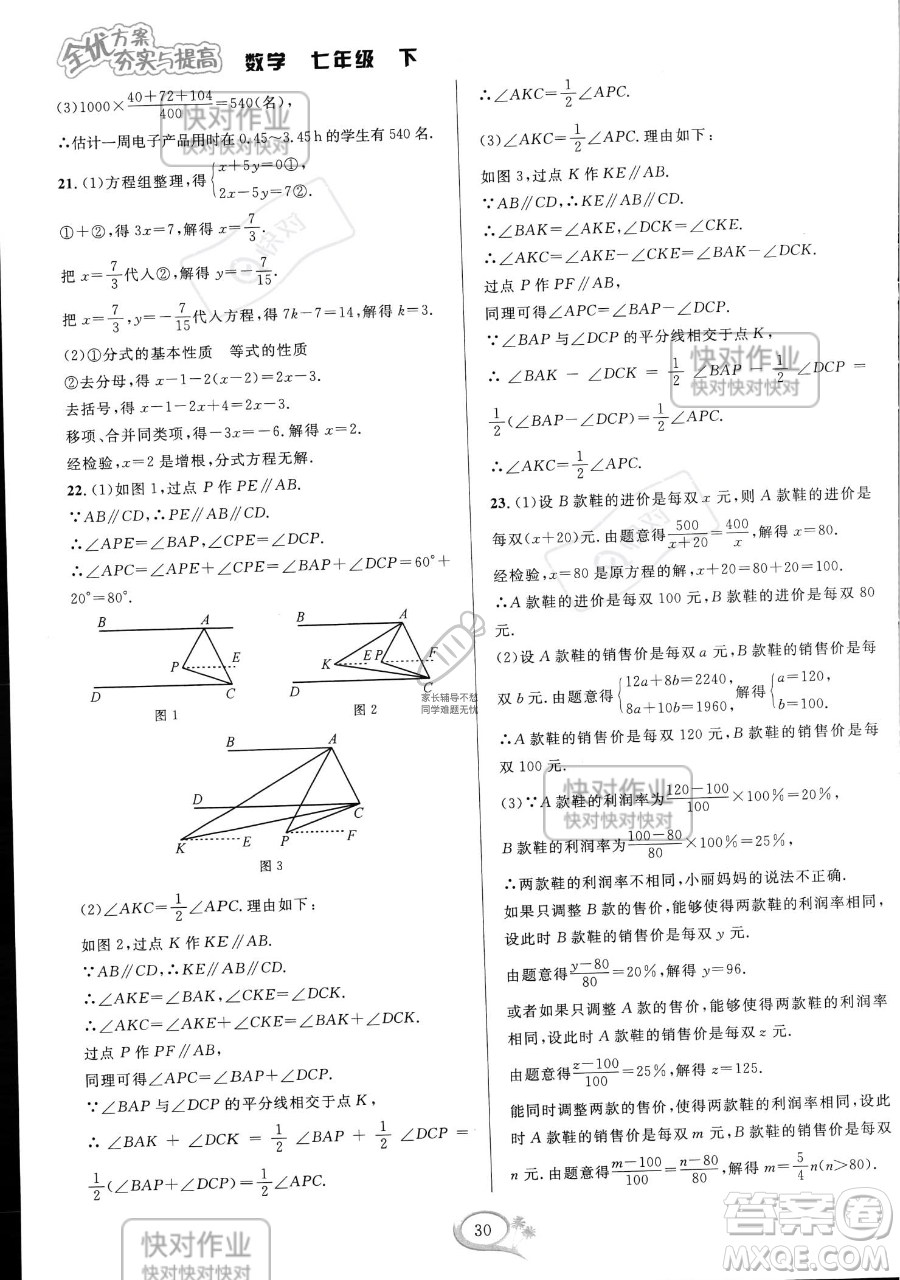 全优方案
夯实与提高 数学 七年级 下
(3)1000×\frac{40+72+104}{400}=540(名),
∴估计一周电子产品用时在 0.45~3.45 h 的学生有 540 名.
21.(1)方程组整理,得{x+5y=0①,
2x-5y=7②.
①+②,得 3x=7,解得 x=\frac{7}{3}.
把 x=\frac{7}{3}代入②,解得 y=-\frac{7}{15}.
把 x=\frac{7}{3},y=-\frac{7}{15}代入方程,得 7k-7=14,解得 k=3.
(2)①分式的基本性质 等式的性质
②去分母,得 x-1-2(x-2)=-1.
去括号,得 x-1-2x+4=2.
移项、合并同类项,得-3x=-6.解得 x=2.
经检验,x=2 是增根,分式方程无解.
22.(1)如图 1,过点 P 作 PE∥AB.
∵AB∥CD,∴PE∥AB∥CD.
∴∠APE=∠BAP,∠CPE=∠DCP.
∴∠APC=∠APE+∠CPE=∠BAP+∠DCP=60°+
20°=80°.
B A P E D C
图 1
B A K E P F D C
图 2
B A D C K E P F
图 3
(2)∠AKC=\frac{1}{2}∠APC.理由如下:
如图 2,过点 K 作 KE∥AB.
∵AB∥CD,∴KE∥AB∥CD.
∴∠AKE=∠BAK,∠CKE=∠DCK.
∴∠AKC=∠AKE+∠CKE=∠BAK+∠DCK.
过点 P 作 PF∥AB,
同理可得∠APC=∠BAP+∠DCP.
∵∠BAP与∠DCP 的平分线相交于点 K,
∴ ∠BAK + ∠DCK = \frac{1}{2} ∠BAP + \frac{1}{2} ∠DCP =
\frac{1}{2}(∠BAP+∠DCP)=\frac{1}{2}∠APC.
∴∠AKC=\frac{1}{2}∠APC.
(3)∠AKC=\frac{1}{2}∠APC.理由如下:
如图 3,过点 K 作 KE∥AB.
∵AB∥CD,∴KE∥AB∥CD.
∴∠BAK=∠AKE,∠DCK=∠CKE.
∴∠AKC=∠AKE-∠CKE=∠BAK-∠DCK.
过点 P 作 PF∥AB,
同理可得∠APC=∠BAP-∠DCP.
∵∠BAP 与∠DCP 的平分线相交于点 K,
∴ ∠BAK - ∠DCK = \frac{1}{2} ∠BAP - \frac{1}{2} ∠DCP =
\frac{1}{2}(∠BAP-∠DCP)=\frac{1}{2}∠APC.
∴∠AKC=\frac{1}{2}∠APC.
23.(1)设 B 款鞋的进价是每双 x 元,则 A 款鞋的进价是
每双(x+20)元.由题意得\frac{500}{x+20}=\frac{400}{x},解得 x=80.
经检验,x=80 是原方程的解,x+20=80+20=100.
∴A 款鞋的进价是每双 100 元,B 款鞋的进价是每双 80
元.
(2)设 A 款鞋的销售价是每双 a 元,B 款鞋的销售价是每
双 b 元.由题意得{12a+8b=2240,
8a+10b=1960,解得{a=120,
b=100.
∴A 款鞋的销售价是每双 120 元,B 款鞋的销售价是每
双 100 元.
(3)∵A 款鞋的利润率为\frac{120-100}{100}×100%=20%,
B 款鞋的利润率为\frac{100-80}{80}×100%=25%,
∴两款鞋的利润率不相同,小丽妈妈的说法不正确.
如果只调整 B 款的售价,能够使得两款鞋的利润率相同,
设此时 B 款鞋的销售价是每双 y 元.
由题意得\frac{y-80}{80}=20%,解得 y=96.
或者如果只调整 A 款的售价,能够使得两款鞋的利润率
相同,设此时 A 款鞋的销售价是每双 z 元.
由题意得\frac{z-100}{100}=25%,解得 z=125.
能同时调整两款的售价,使得两款鞋的利润率相同,设此
时 A 款鞋的销售价是每双 m 元,B 款鞋的销售价是每双
n 元.由题意得\frac{m-100}{100}=\frac{n-80}{80},解得 m=\frac{5}{4}n(n>80).
30
快对作业
快对快对快对
快对作业
快对快对快对
快对作业
快对快对快对
快对作业
快对快对快对
快对
快对
家长辅导不愁
同学难题无忧
答案卷
MXQE.COM